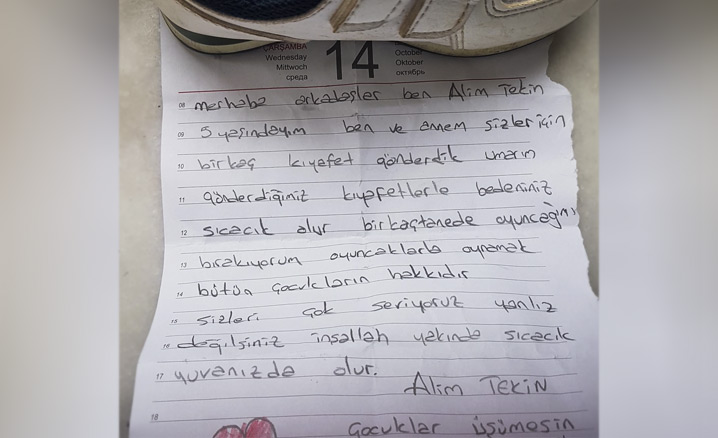 ÇARŞAMBA
Wednesday
Mittwoch
среда
14
October
Oktober
октябрь
08 merhaba arkadaşlar ben Alim Tekin
09 5 yaşındayım ben ve annem sizler için
10 birkaç kıyafet gönderdik umarım
11 gönderdiğimiz kıyafetlerle bedeniniz
12 sıcacık olur birkaçtanede oyuncağımı
13 bırakıyorum oyuncaklarla oynamak
14 bütün çocukların hakkıdır
15 sizleri çok seviyoruz yanlız
16 değilsiniz inşallah yakında sıcacık
17 yuvanızda olur.
Alim TEKİN
18
Çocuklar üşümesin